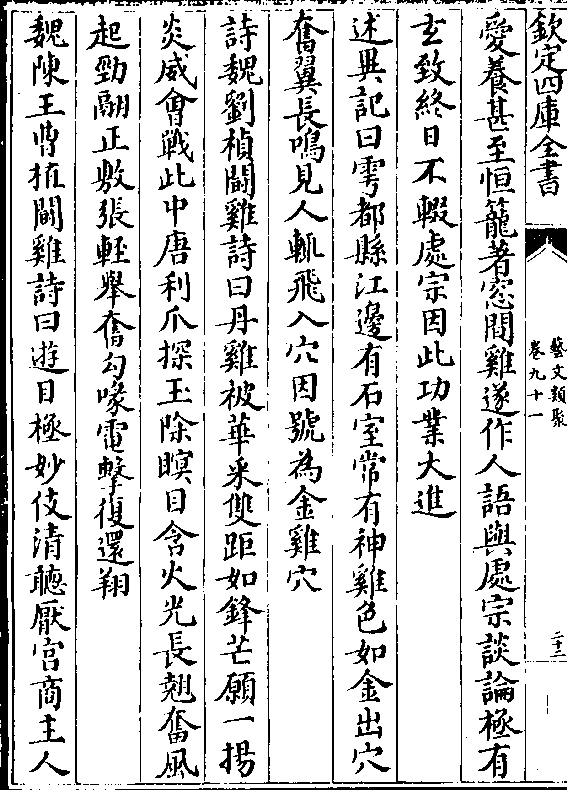 欽定四庫全書
藝文類聚
卷九十一
二十三
愛養甚至恒籠著窓間雞遂作人語與處宗談論極有
玄致終日不輟處宗因此功業大進
述異記曰雩都縣江邊有石室常有神雞色如金出穴
奮翼長鳴見人輒飛入穴因號為金雞穴
詩魏劉楨鬭雞詩曰丹雞被華采雙距如鋒芒願一揚
炎威會戰此中唐利爪探玉除瞋目含火光長翹奮風
起勁翮正敷張輕舉奮勾喙電擊復還翔
魏陳王曹植鬭雞詩曰遊目極妙伎清聽厭宫商主人